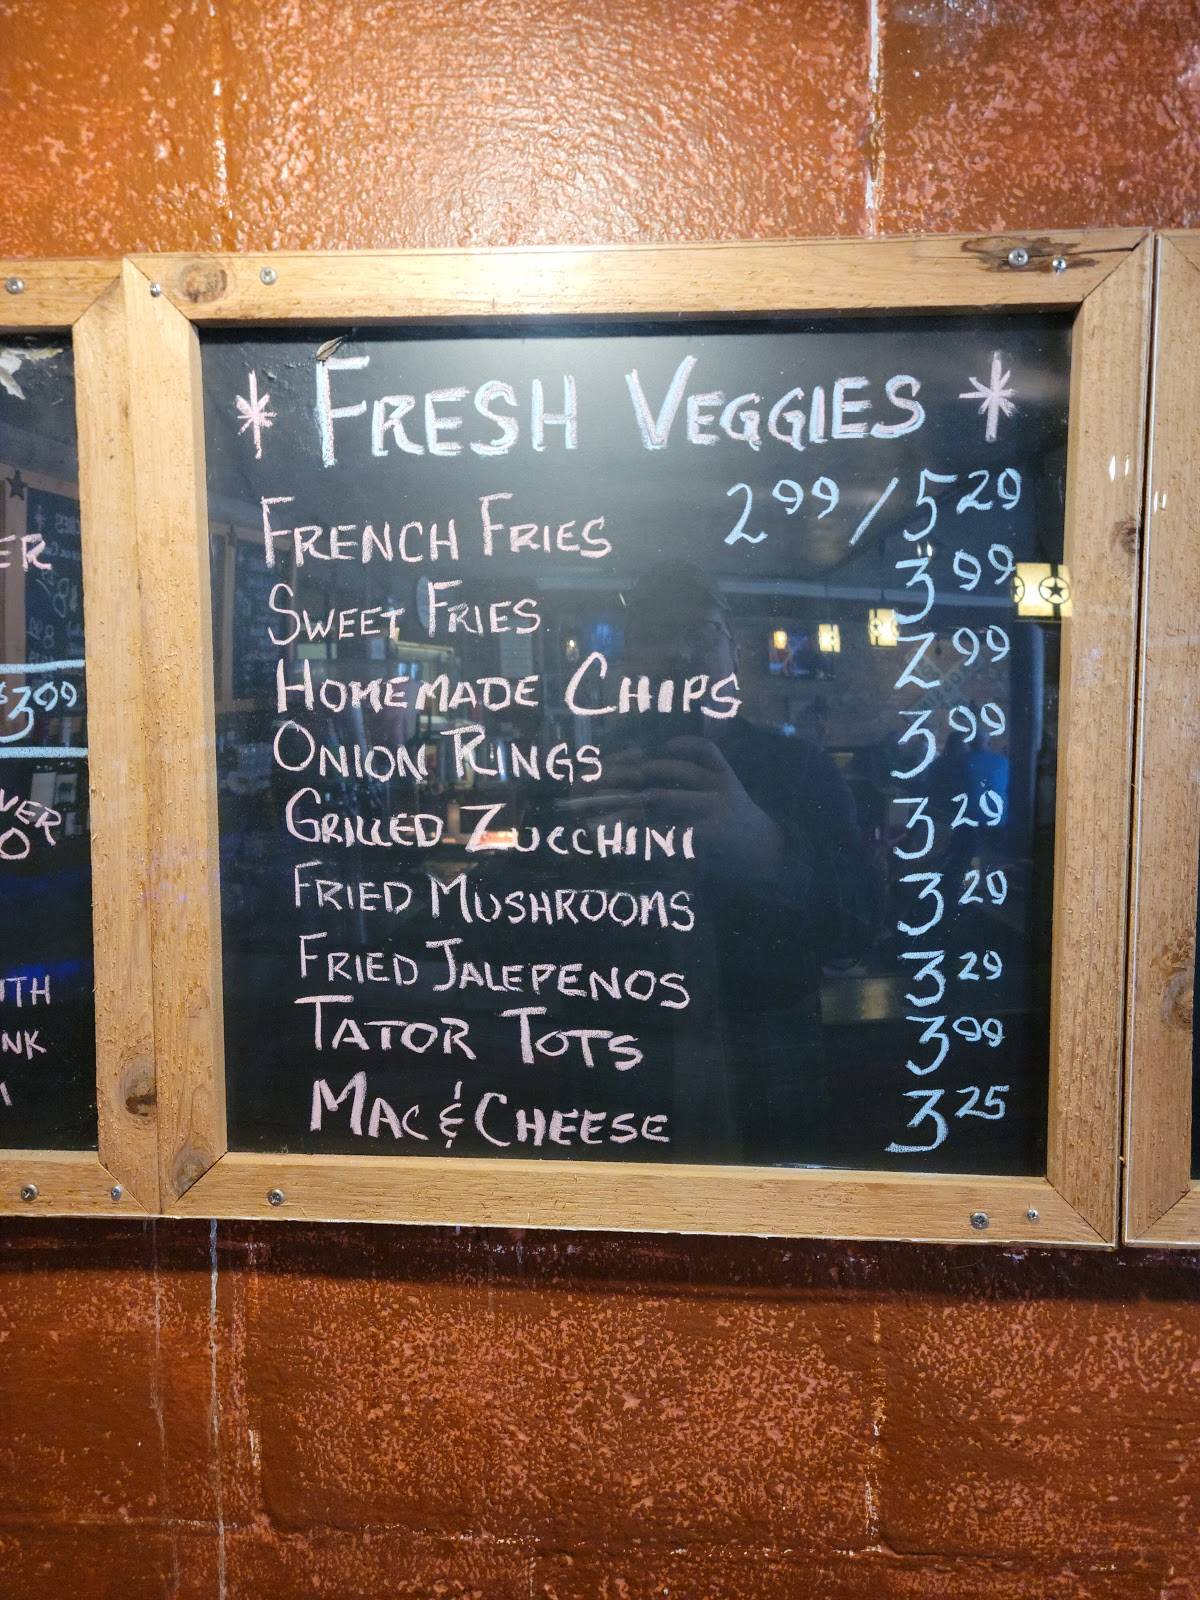 * FRESH VEGGIES *
FRENCH FRIES 2.99 / 5.29
SWEET FRIES 3.99
HOMEMADE CHIPS 2.99
ONION RINGS 3.99
GRILLED ZUCCHINI 3.29
FRIED MUSHROOMS 3.29
FRIED JALEPENOS 3.29
TATOR TOTS 3.99
MAC & CHEESE 3.25
ER
$3.99
VER
O
ITH
NK
I